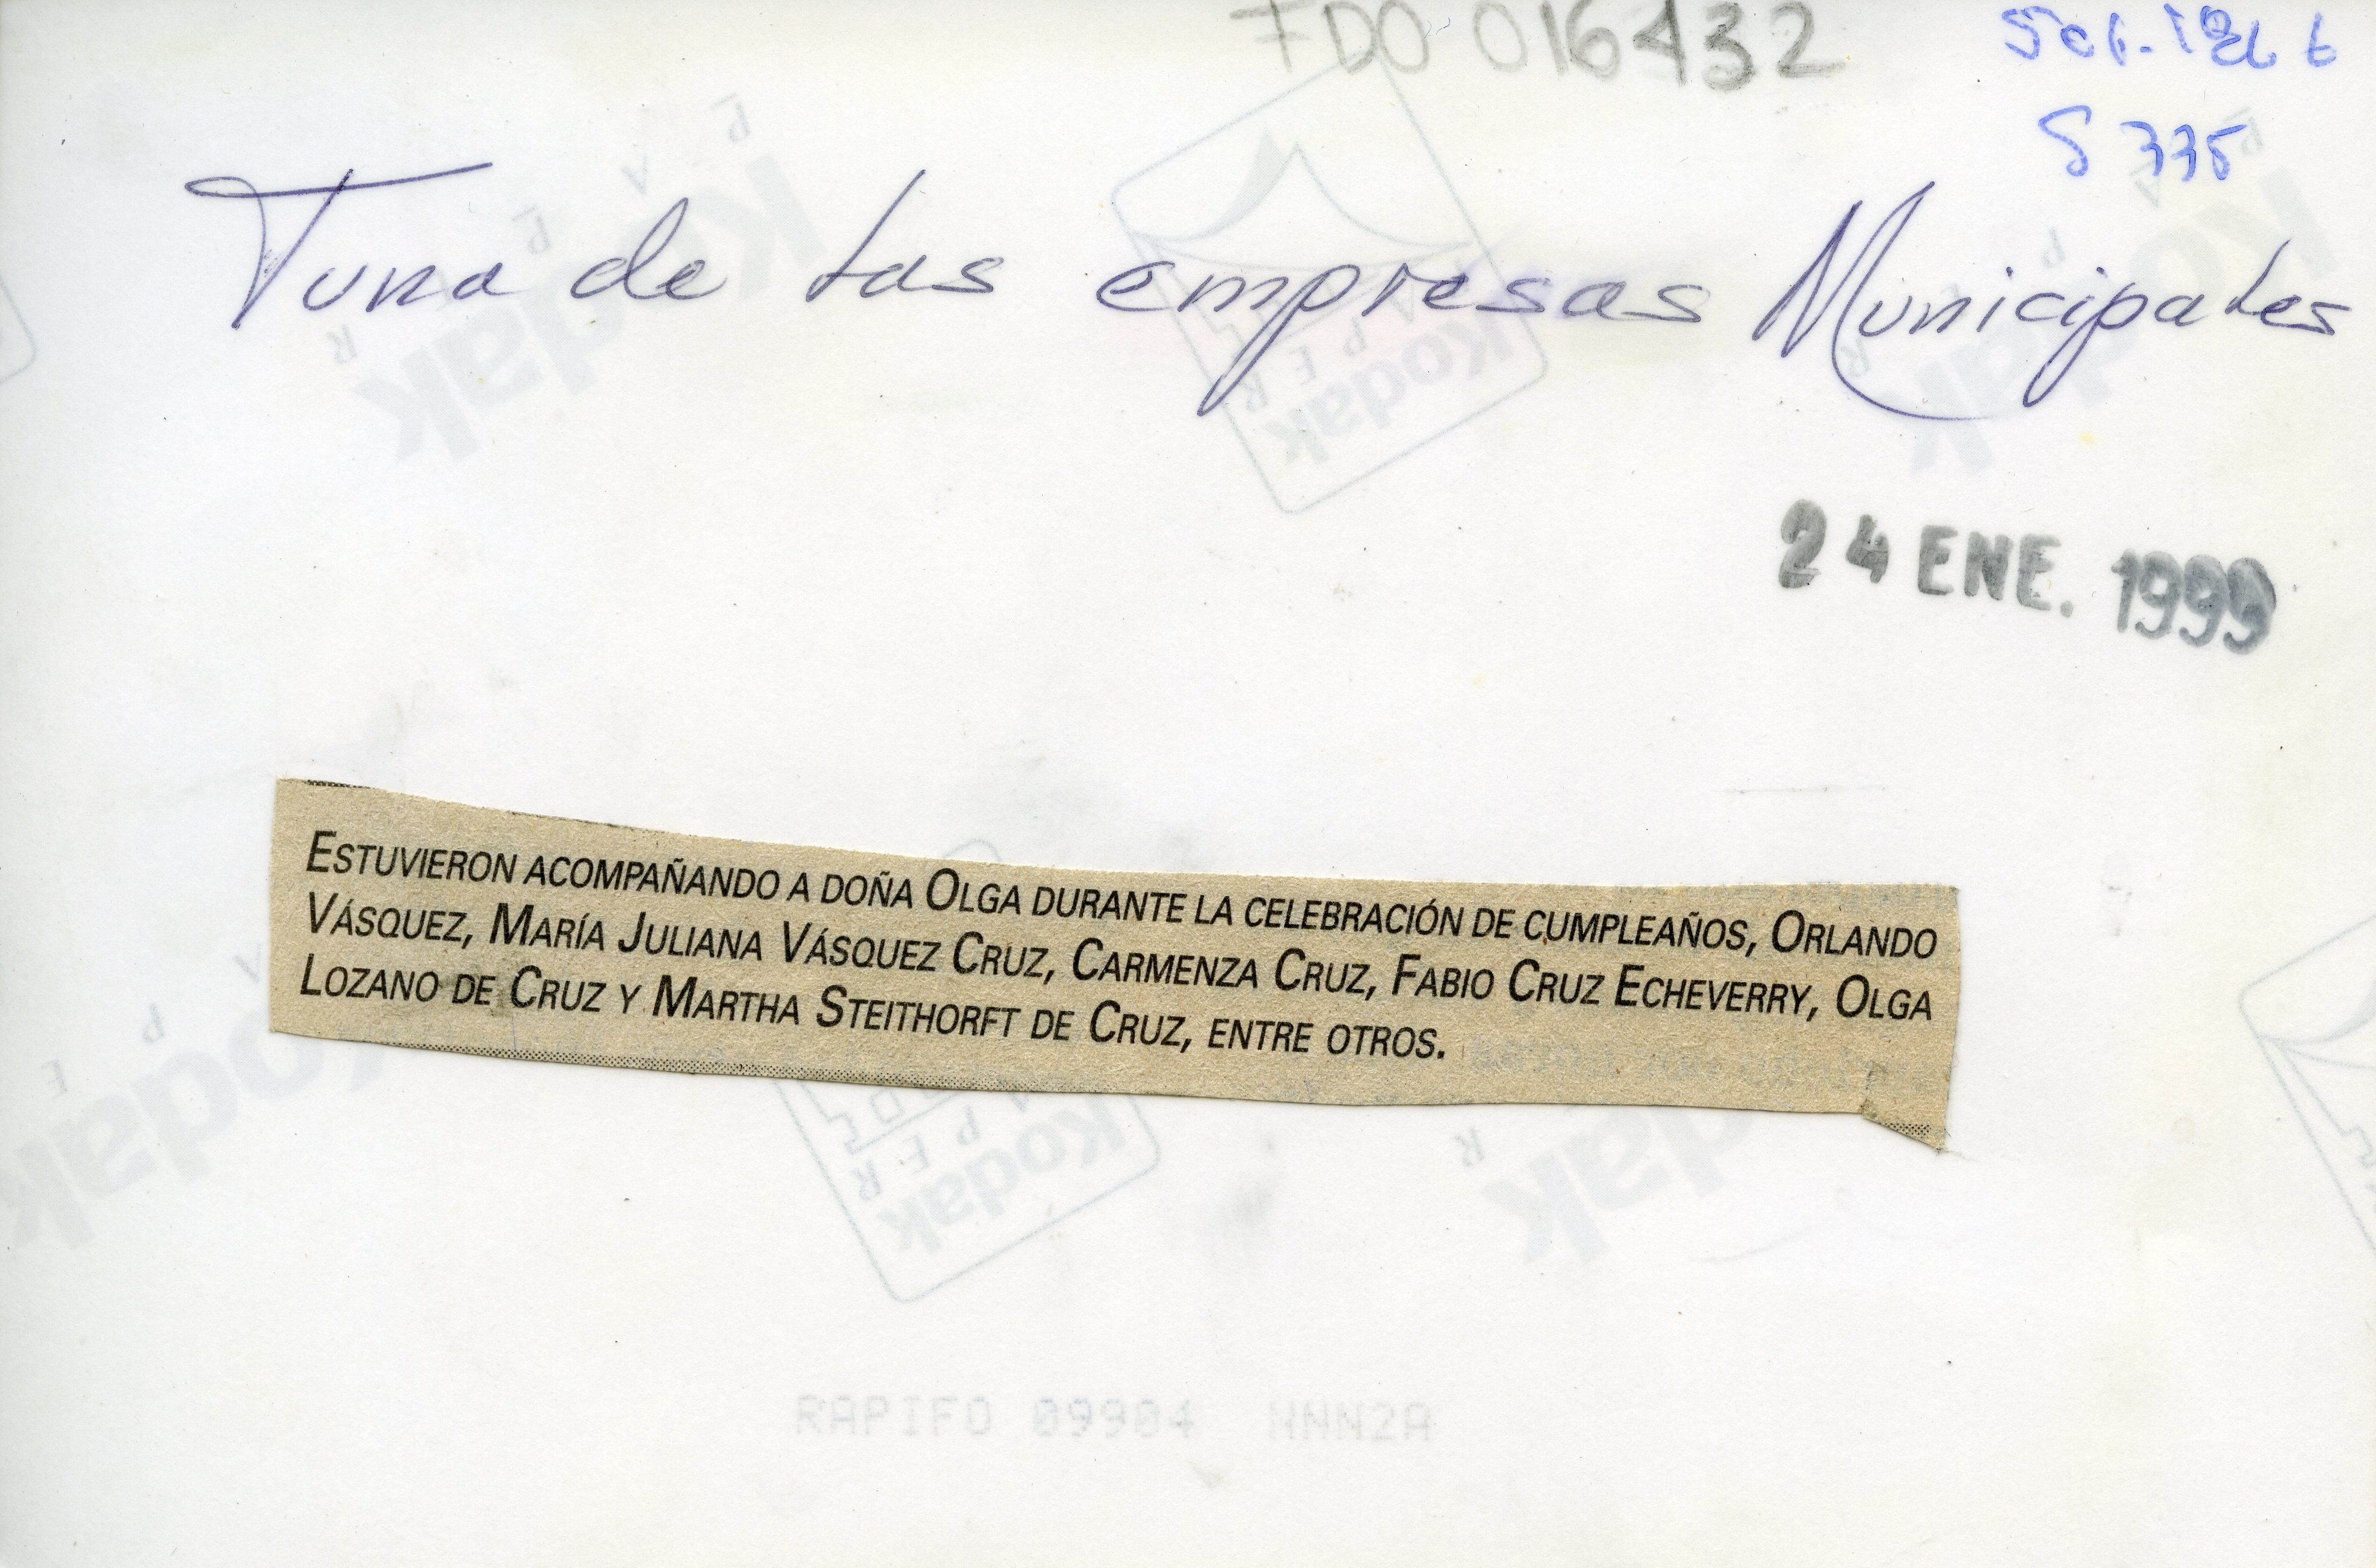 FDO 016432
S 335
Tuna de las empresas Municipales
24 ENE. 1999
ESTUVIERON ACOMPAÑANDO A DOÑA OLGA DURANTE LA CELEBRACIÓN DE CUMPLEAÑOS, ORLANDO
VÁSQUEZ, MARÍA JULIANA VÁSQUEZ CRUZ, CARMENZA CRUZ, FABIO CRUZ ECHEVERRY, OLGA
LOZANO DE CRUZ Y MARTHA STEITHORFT DE CRUZ, ENTRE OTROS.
Kodak
PAPER
RAPIFO 09904 NNN2A